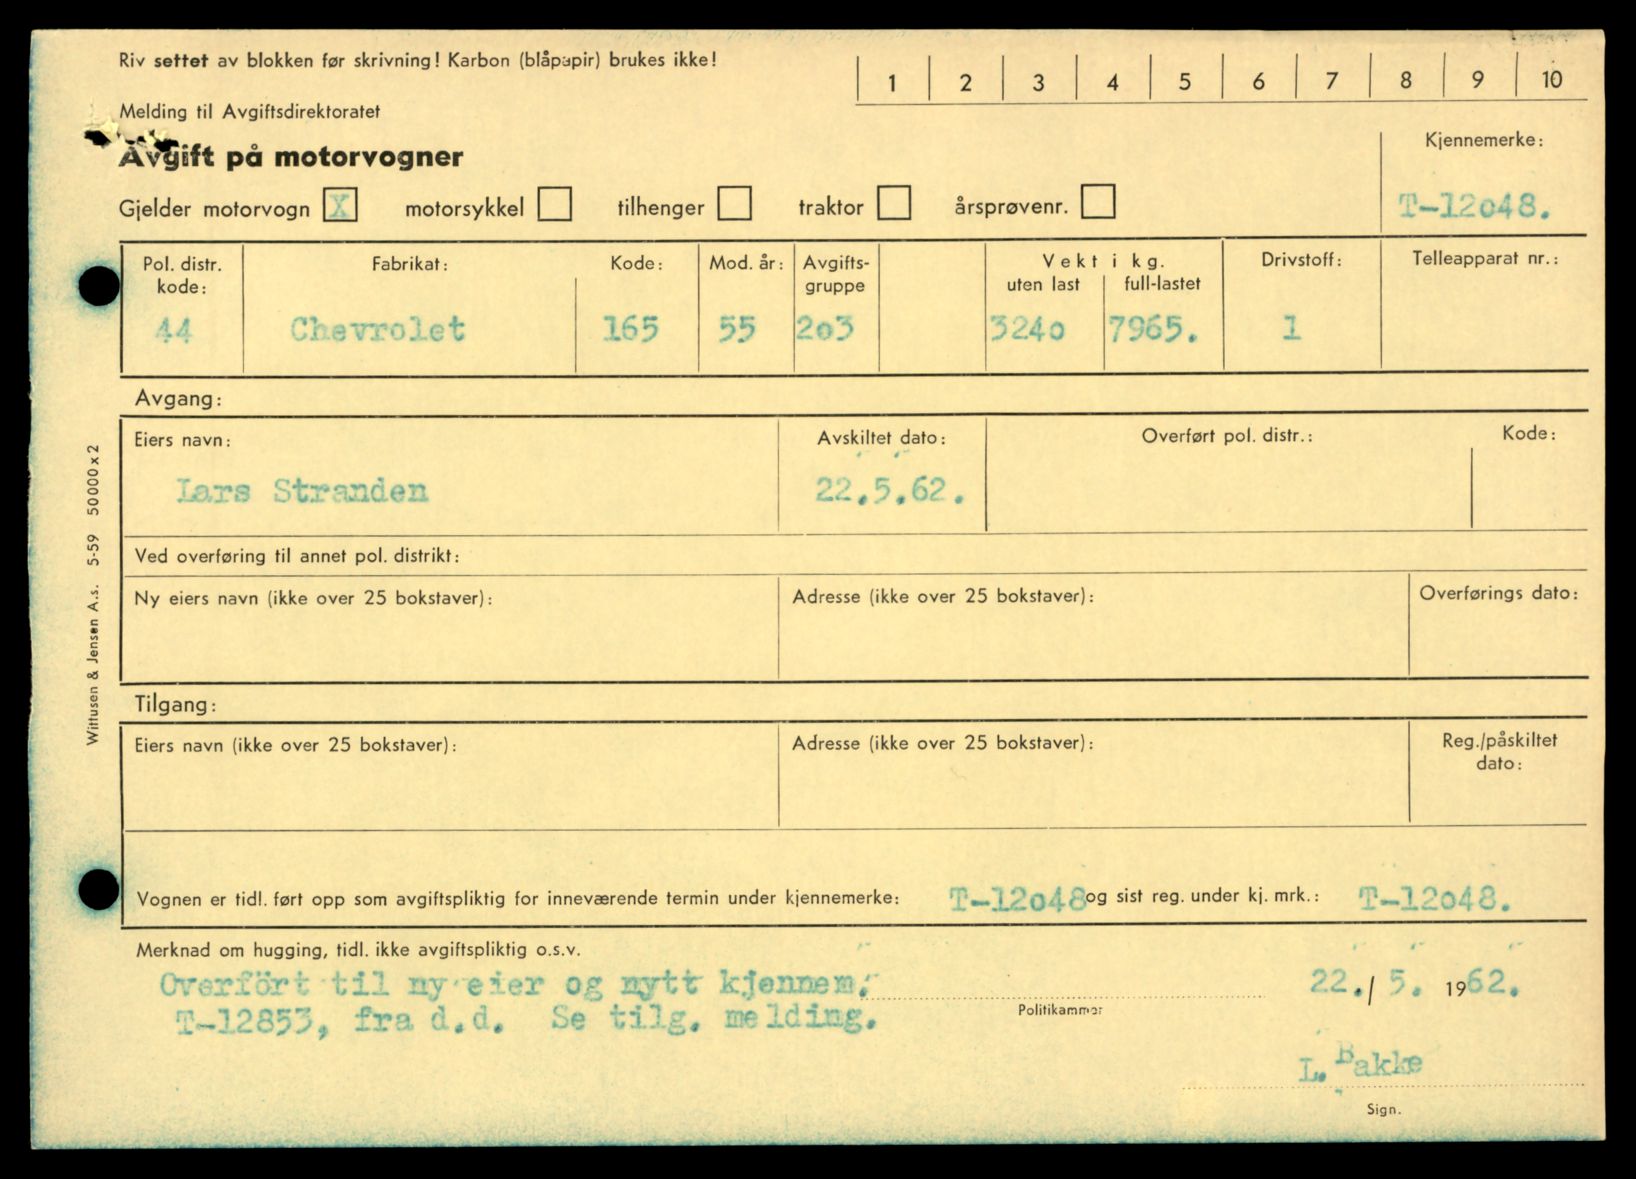 Riv settet av blokken før skrivning! Karbon (blåpapir) brukes ikke!
1 2 3 4 5 6 7 8 9 10
Melding til Avgiftsdirektoratet
Avgift på motorvogner
Kjennemerke:
Gjelder motorvogn X motorsykkel tilhenger traktor årsprøvenr.
T-12o48.
Pol. distr. kode:
Fabrikat:
Kode:
Mod. år:
Avgifts-gruppe
Vekt i kg.
uten last
full-lastet
Drivstoff:
Telleapparat nr.:
44 Chevrolet 165 55 2o3 324o 7965. 1
Avgang:
Eiers navn:
Avskiltet dato:
Overført pol. distr.:
Kode:
Lars Stranden 22.5.62.
Ved overføring til annet pol. distrikt:
Ny eiers navn (ikke over 25 bokstaver):
Adresse (ikke over 25 bokstaver):
Overførings dato:
Tilgang:
Eiers navn (ikke over 25 bokstaver):
Adresse (ikke over 25 bokstaver):
Reg./påskiltet
dato:
Vognen er tidl. ført opp som avgiftspliktig for inneværende termin under kjennemerke: T-12o48 og sist reg. under kj. mrk.: T-12o48.
Merknad om hugging, tidl. ikke avgiftspliktig o.s.v.
Overfört til ny eier og nytt kjennem. 22./5. 1962.
T-12853, fra d.d. Se tilg. melding.
Politikammer
L. Bakke
Sign.
Wittusen & Jensen A.s. 5-59 50000x2